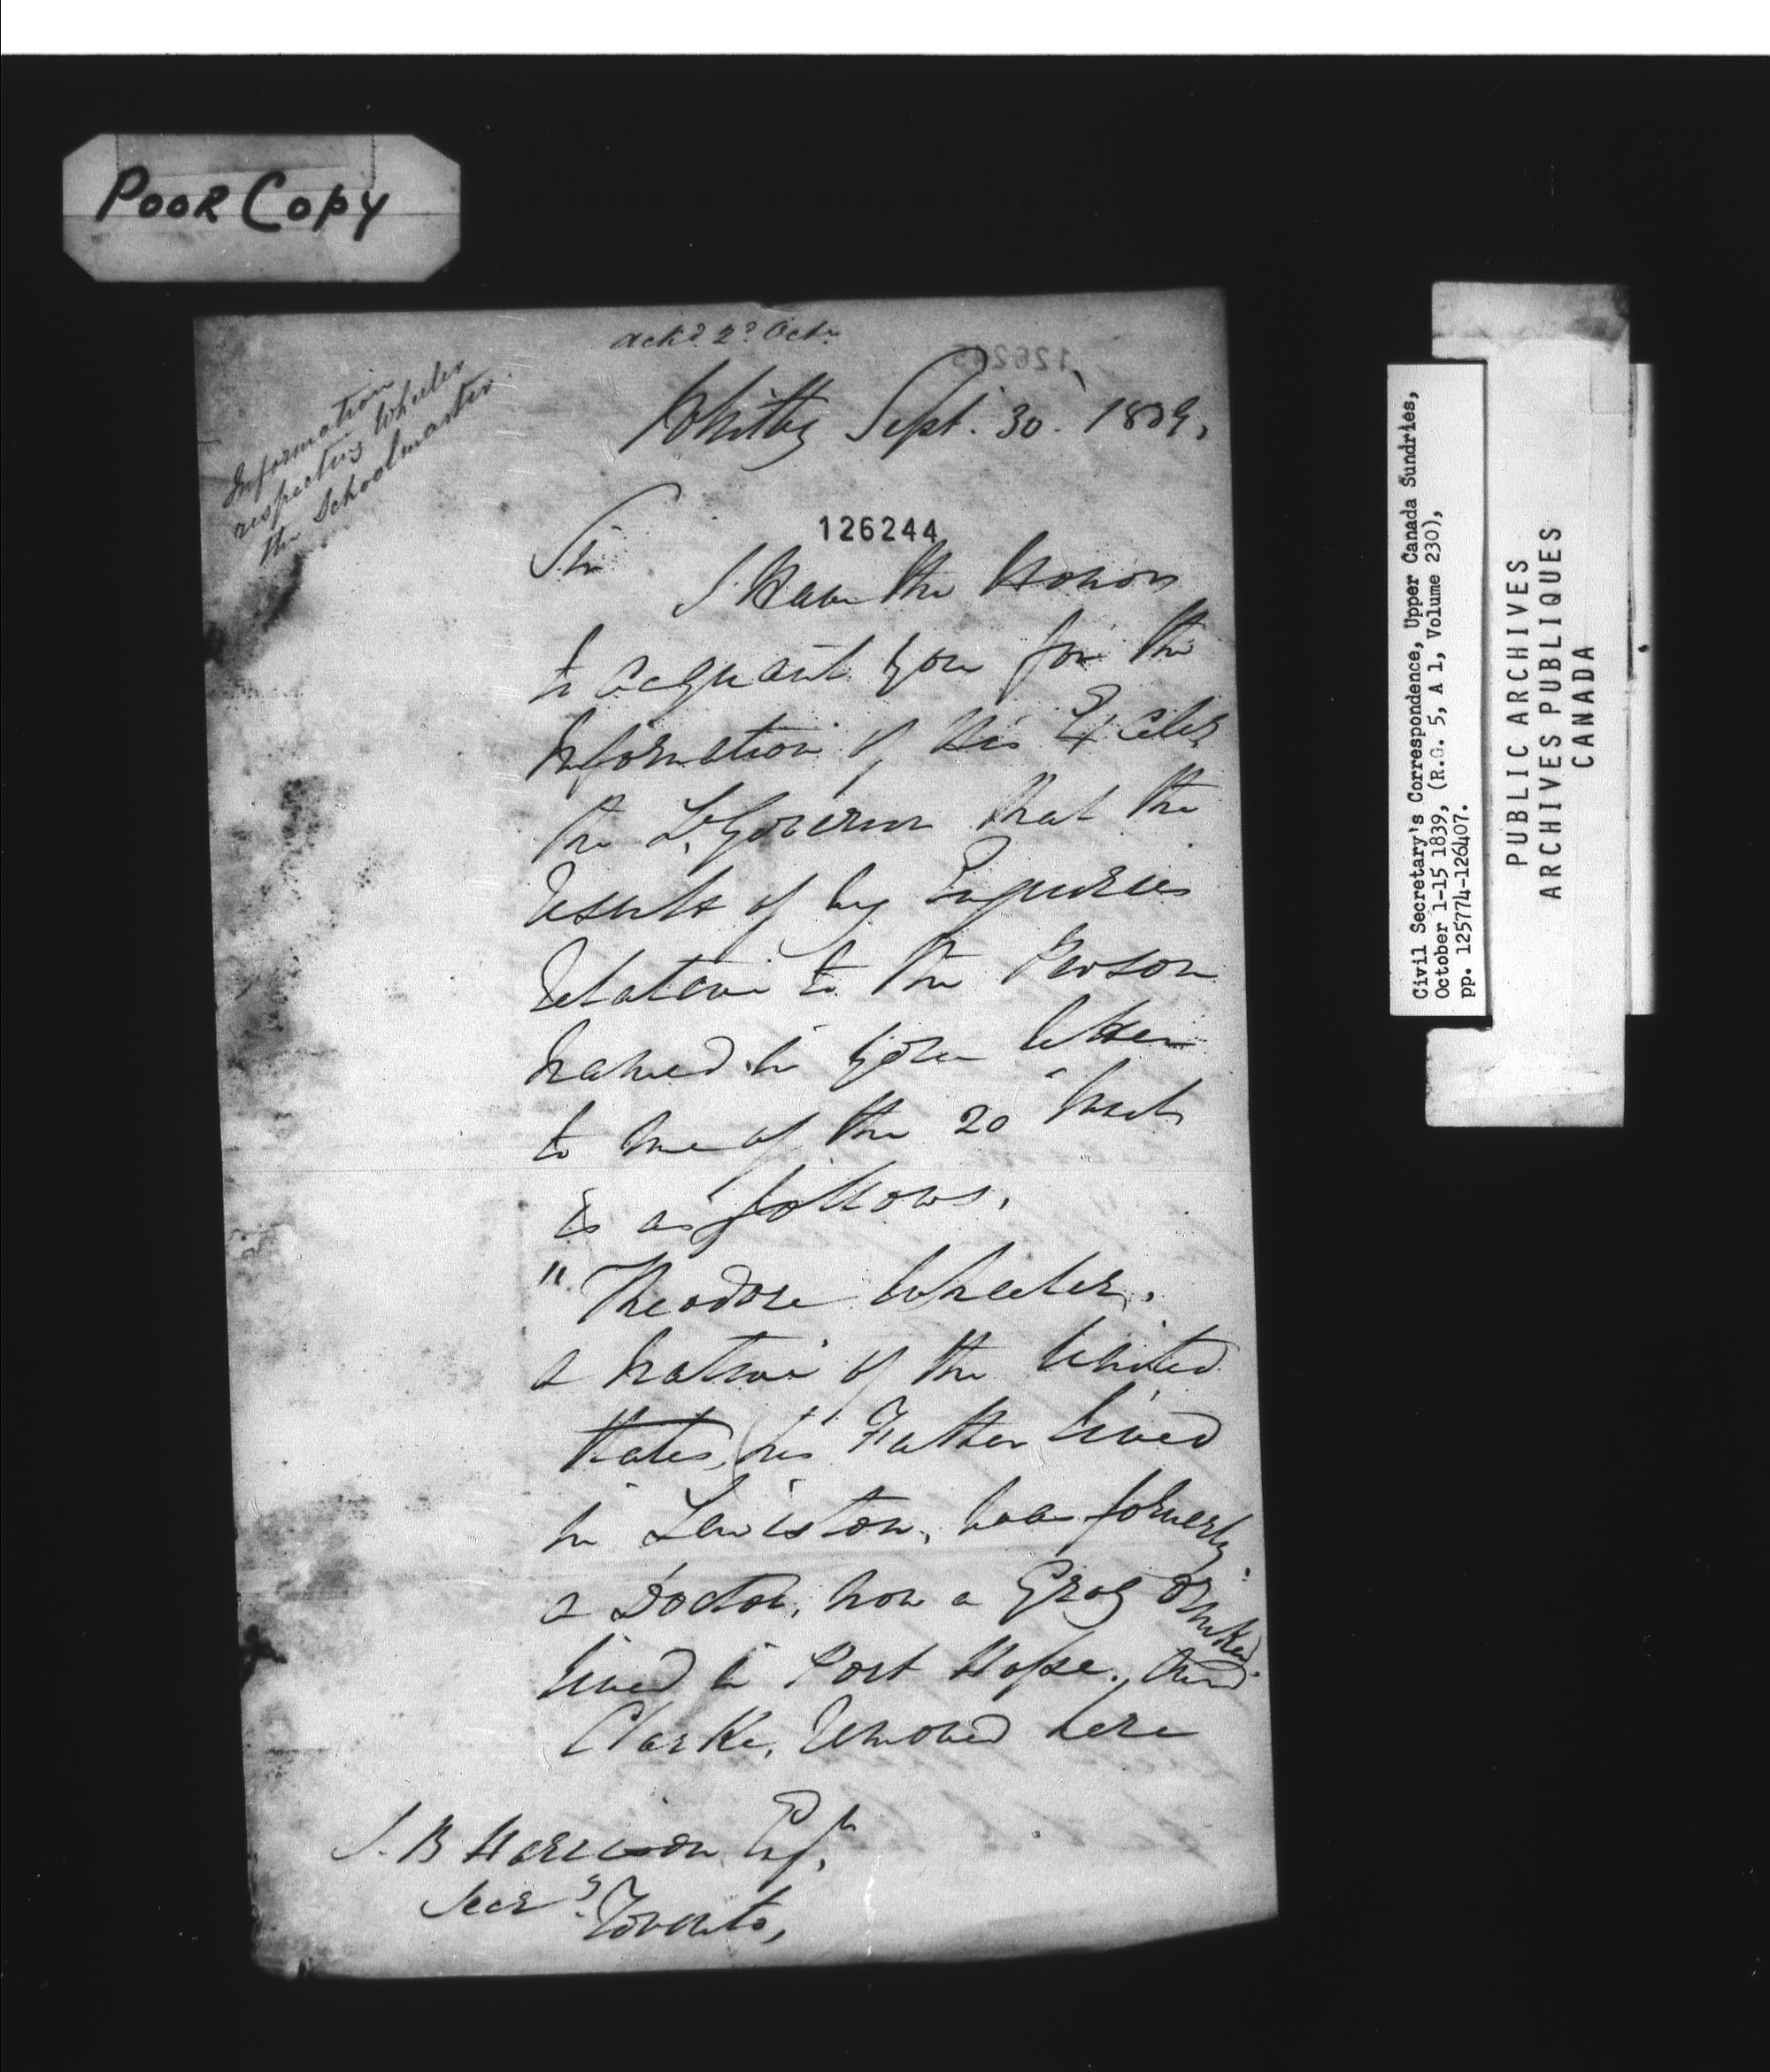 POOR COPY
ackd. 2d. Octr.
126245
Information
respecting Wheeler
the Schoolmaster.
Whitby Sept. 30. 1839,
126244
Sir
I Have the Honor
to acquaint you for the
Information of His Excelly
the Lt. Governor that the
Results of my Enquiries
Relative to the Person
named in your letter
to me of the 20 Inst
is as follows.
" Theodore Wheeler,
a native of the United
States, (his Father lived
in Lewiston, was formerly
a Doctor, now a Grog Drinker.
lived in Port Hope, then
Clarke, Removed here
J. B Harrison Esqr.
Secry. Toronto,
Civil Secretary's Correspondence, Upper Canada Sundries,
October 1-15 1839, (R.G. 5, A 1, Volume 230),
pp. 125774-126407.
PUBLIC ARCHIVES
ARCHIVES PUBLIQUES
CANADA